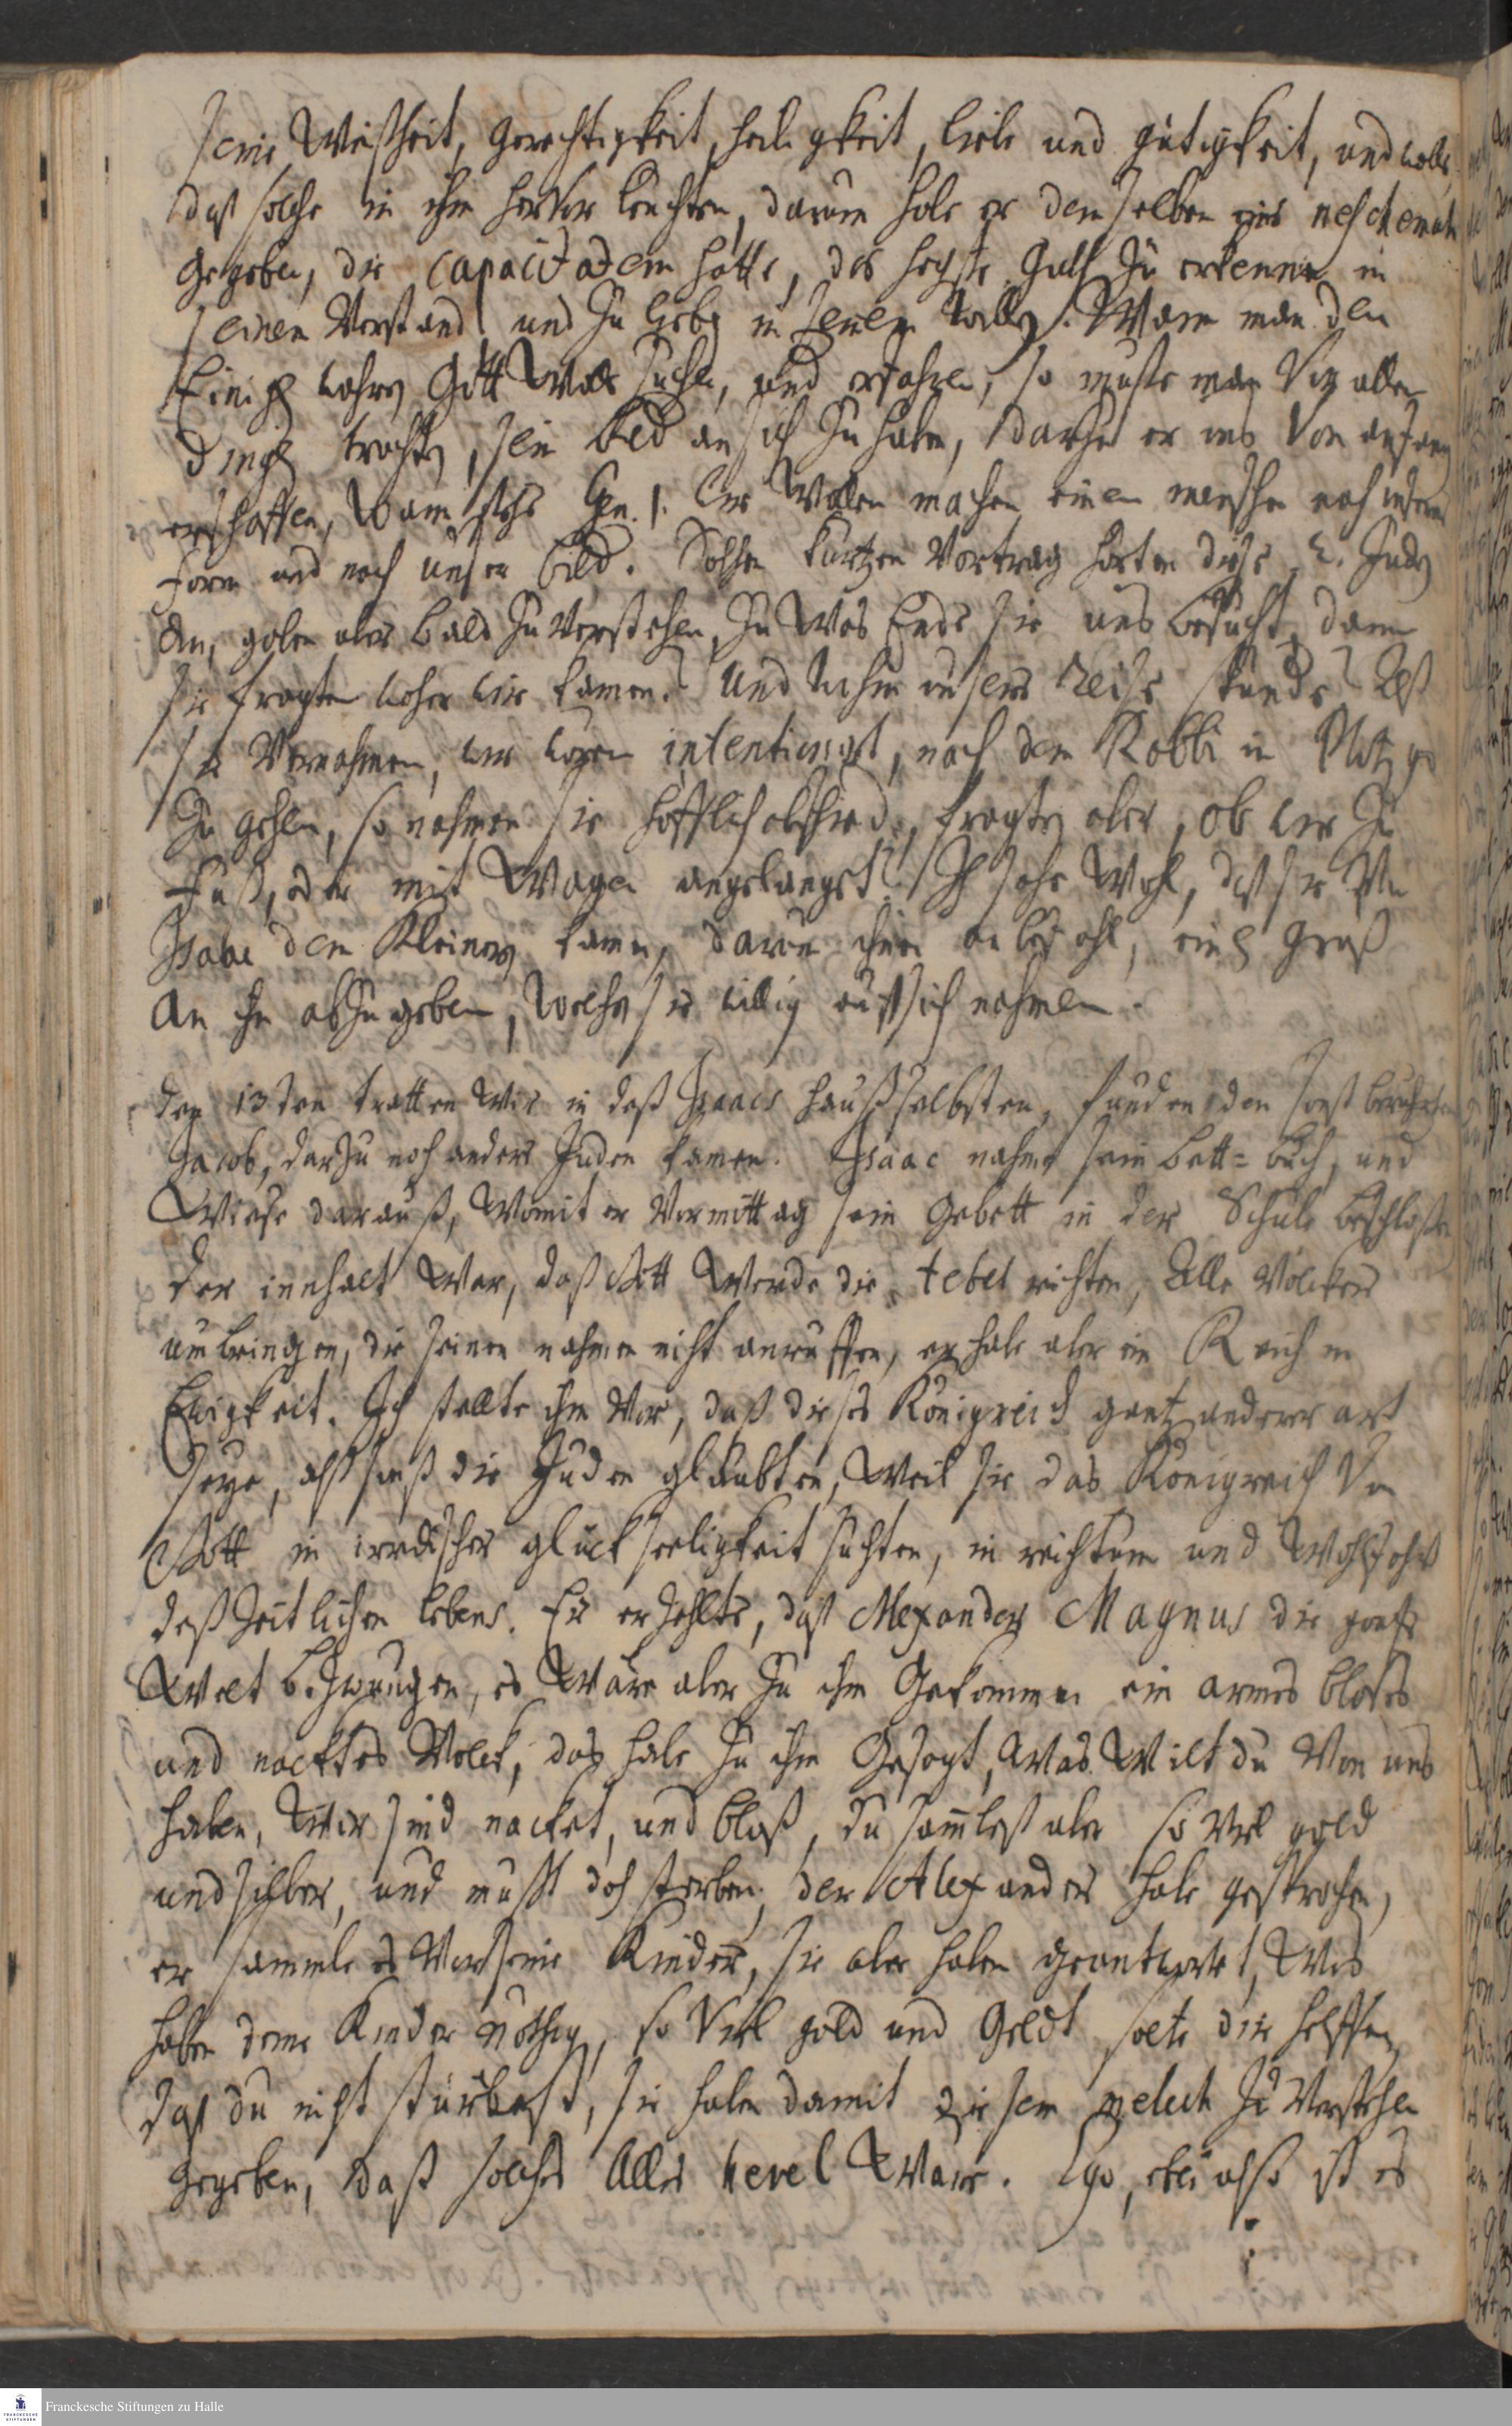 seine Weißheit, gerechtigkeit, heiligkeit, liebe und gütigkeit, und wolle,
daß solche in ihm hervor leuchten, darum habe er demselben eine neschemah
gegeben, die capacitatem hatte, das höchste Guth zu erkennen in
seinem Verstand und zu lieben in seinem willen. Wann man den
Einigen wahren Gott wolle suchen, und erfahren, so muste man vor allen
dingen trachten, sein bild an sich zu haben, darzu er uns von anfang
erschaffen, wann stehe Gen. 1. wir wollen machen einen menschen nach unserer
form und nach unser bild. Solchen kurtzen Vortrag hörten diese 2. Juden
an, gaben aber bald zu verstehen, zu was Ende sie uns besucht, dann
sie fragten woher wir kamen? und wohin unsere reise stünde? Alß
sie Vernahmen, wir wären intentionirt, nach dem Rabbi in
zu gehen, so nahmen sie höfflich abschied, fragten aber, ob wir zu
Fuß, oder mit Wagen angelangt? Ich sahe wohl, daß sie von
Isaac dem Kleinen kamen, darum ihnen anbefohl, einen Gruß
an ihn abzugeben, welchen sie willig auf sich nahmen.
den 13den tratten wir in deß Isaacs hauß selbsten, funden den sonst berührten
Jacob, darzu noch andere Juden kamen. Isaac nahme sein bett=buch, und
wiese darauß, womit er Vormittag sein Gebett in der Schule beschloßen
der innhalt war, daß Gott werde die tebel richten, Alle Völcker
umbringen, die seinen nahmen nicht anruffen, er habe aber ein Reich in
Ewigkeit. Ich stellte ihm vor, daß dieses Königreich gantz anderer art
seye, alß sonst die Juden glaubten, weil sie das Königreich von
Gott in irrdischer glückseeligkeit suchten, in reichtum und wohlfahrt
deß zeitlichen lebens. Er erzehlte, daß Alexander Magnus die gantze
Welt bezwungen, es wäre aber zu ihm Gekommen ein armes bloses
und nacktes Volck, das habe zu ihm Gesagt, was wilt du von uns
haben, wir sind nacket, und bloß, du samlest aber so viel gold
und silber, und must doch sterben, der Alexander habe gesprochen,
er sammle es vor seine Kinder, sie aber haben geantwortet, was
haben deine Kinder nöthig, so viel gold und Geldt solte dir helffen,
daß du nicht stürbest, sie haben damit diesem melech zu verstehen
gegeben, daß solches Alles hevel wäre. Ego, eben also ist es
Franckesche Stiftungen zu Halle